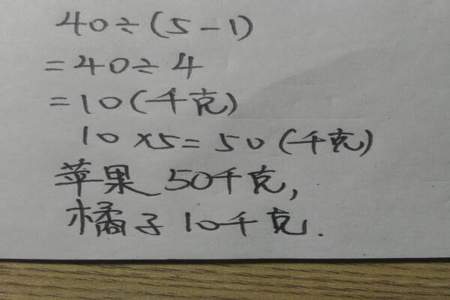 40÷(5-1)
=40÷4
=10(千克)
10×5=50(千克)
苹果 50千克,
橘子 10千克.